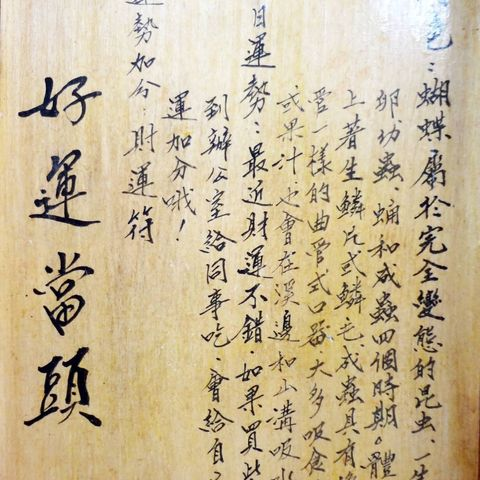 色：蝴蝶屬於完全變態的昆虫、一生
卵幼蟲、蛹和成蟲四個時期。體
上著生鱗片或鱗毛、成蟲具有
管一樣的曲管式口器大多吸食
或果汁也會在溪邊和山溝吸水
日運勢：最近財運不錯、如果買些
到辦公室給同事吃、會給自
運加分哦！
運勢加分：財運符
好運當頭